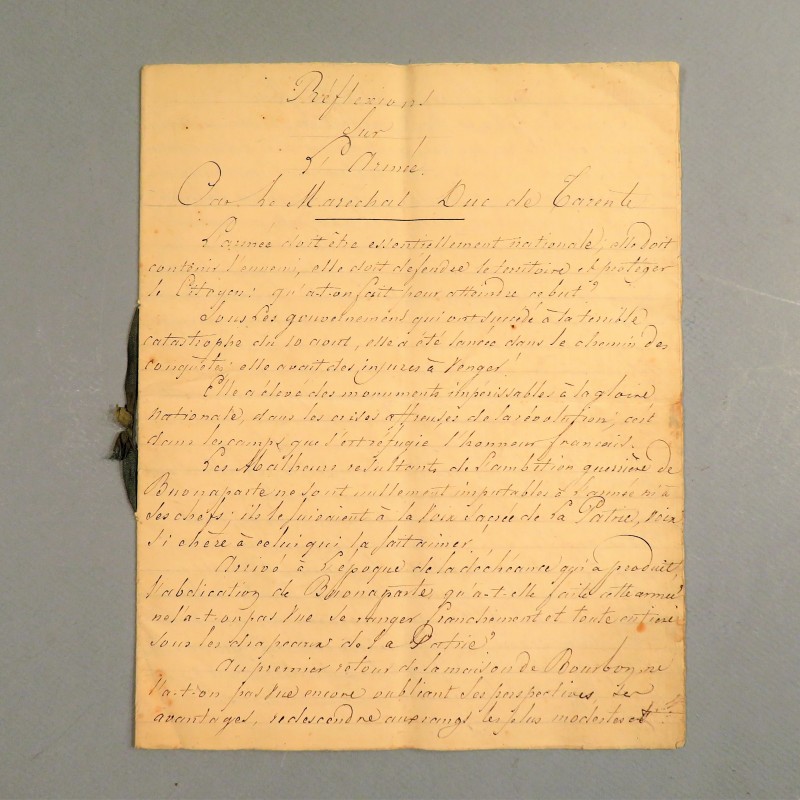 Réflexions
sur
L'Armée.
Par Le Maréchal Duc de Tarente
L'armée doit être essentiellement nationale; elle doit
contenir l'ennemi, elle doit défendre le territoire et protéger
le Citoyen: qu'a-t-on fait pour atteindre ce but?
Sous les gouvernements qui ont succédé à la terrible
catastrophe du 10 aout, elle a été lancée dans le chemin des
conquêtes; elle avait des injures à venger!
Elle a élevé des monuments impérissables à la gloire
nationale, dans les crises affreuses de la révolution; c'est
dans les camps que s'est réfugié l'honneur français.
Les Malheurs résultants de l'ambition guerrière de
Buonaparte ne sont nullement imputables à l'armée ni à
ses chefs; ils le suivaient à la voix sacrée de La Patrie, voix
si chère à celui qui la fait aimer.
Arrivé à l'époque de la déchéance qui a produit
l'abdication de Buonaparte, qu'a-t-elle faite cette armée
ne l'a-t-on pas vue se ranger franchement et toute entière
sous les drapeaux de la Patrie?
Au premier retour de la maison de Bourbon, ne
l'a-t-on pas vue encore oubliant ses perspectives, ses
avantages, redescendre aux rangs les plus modestes